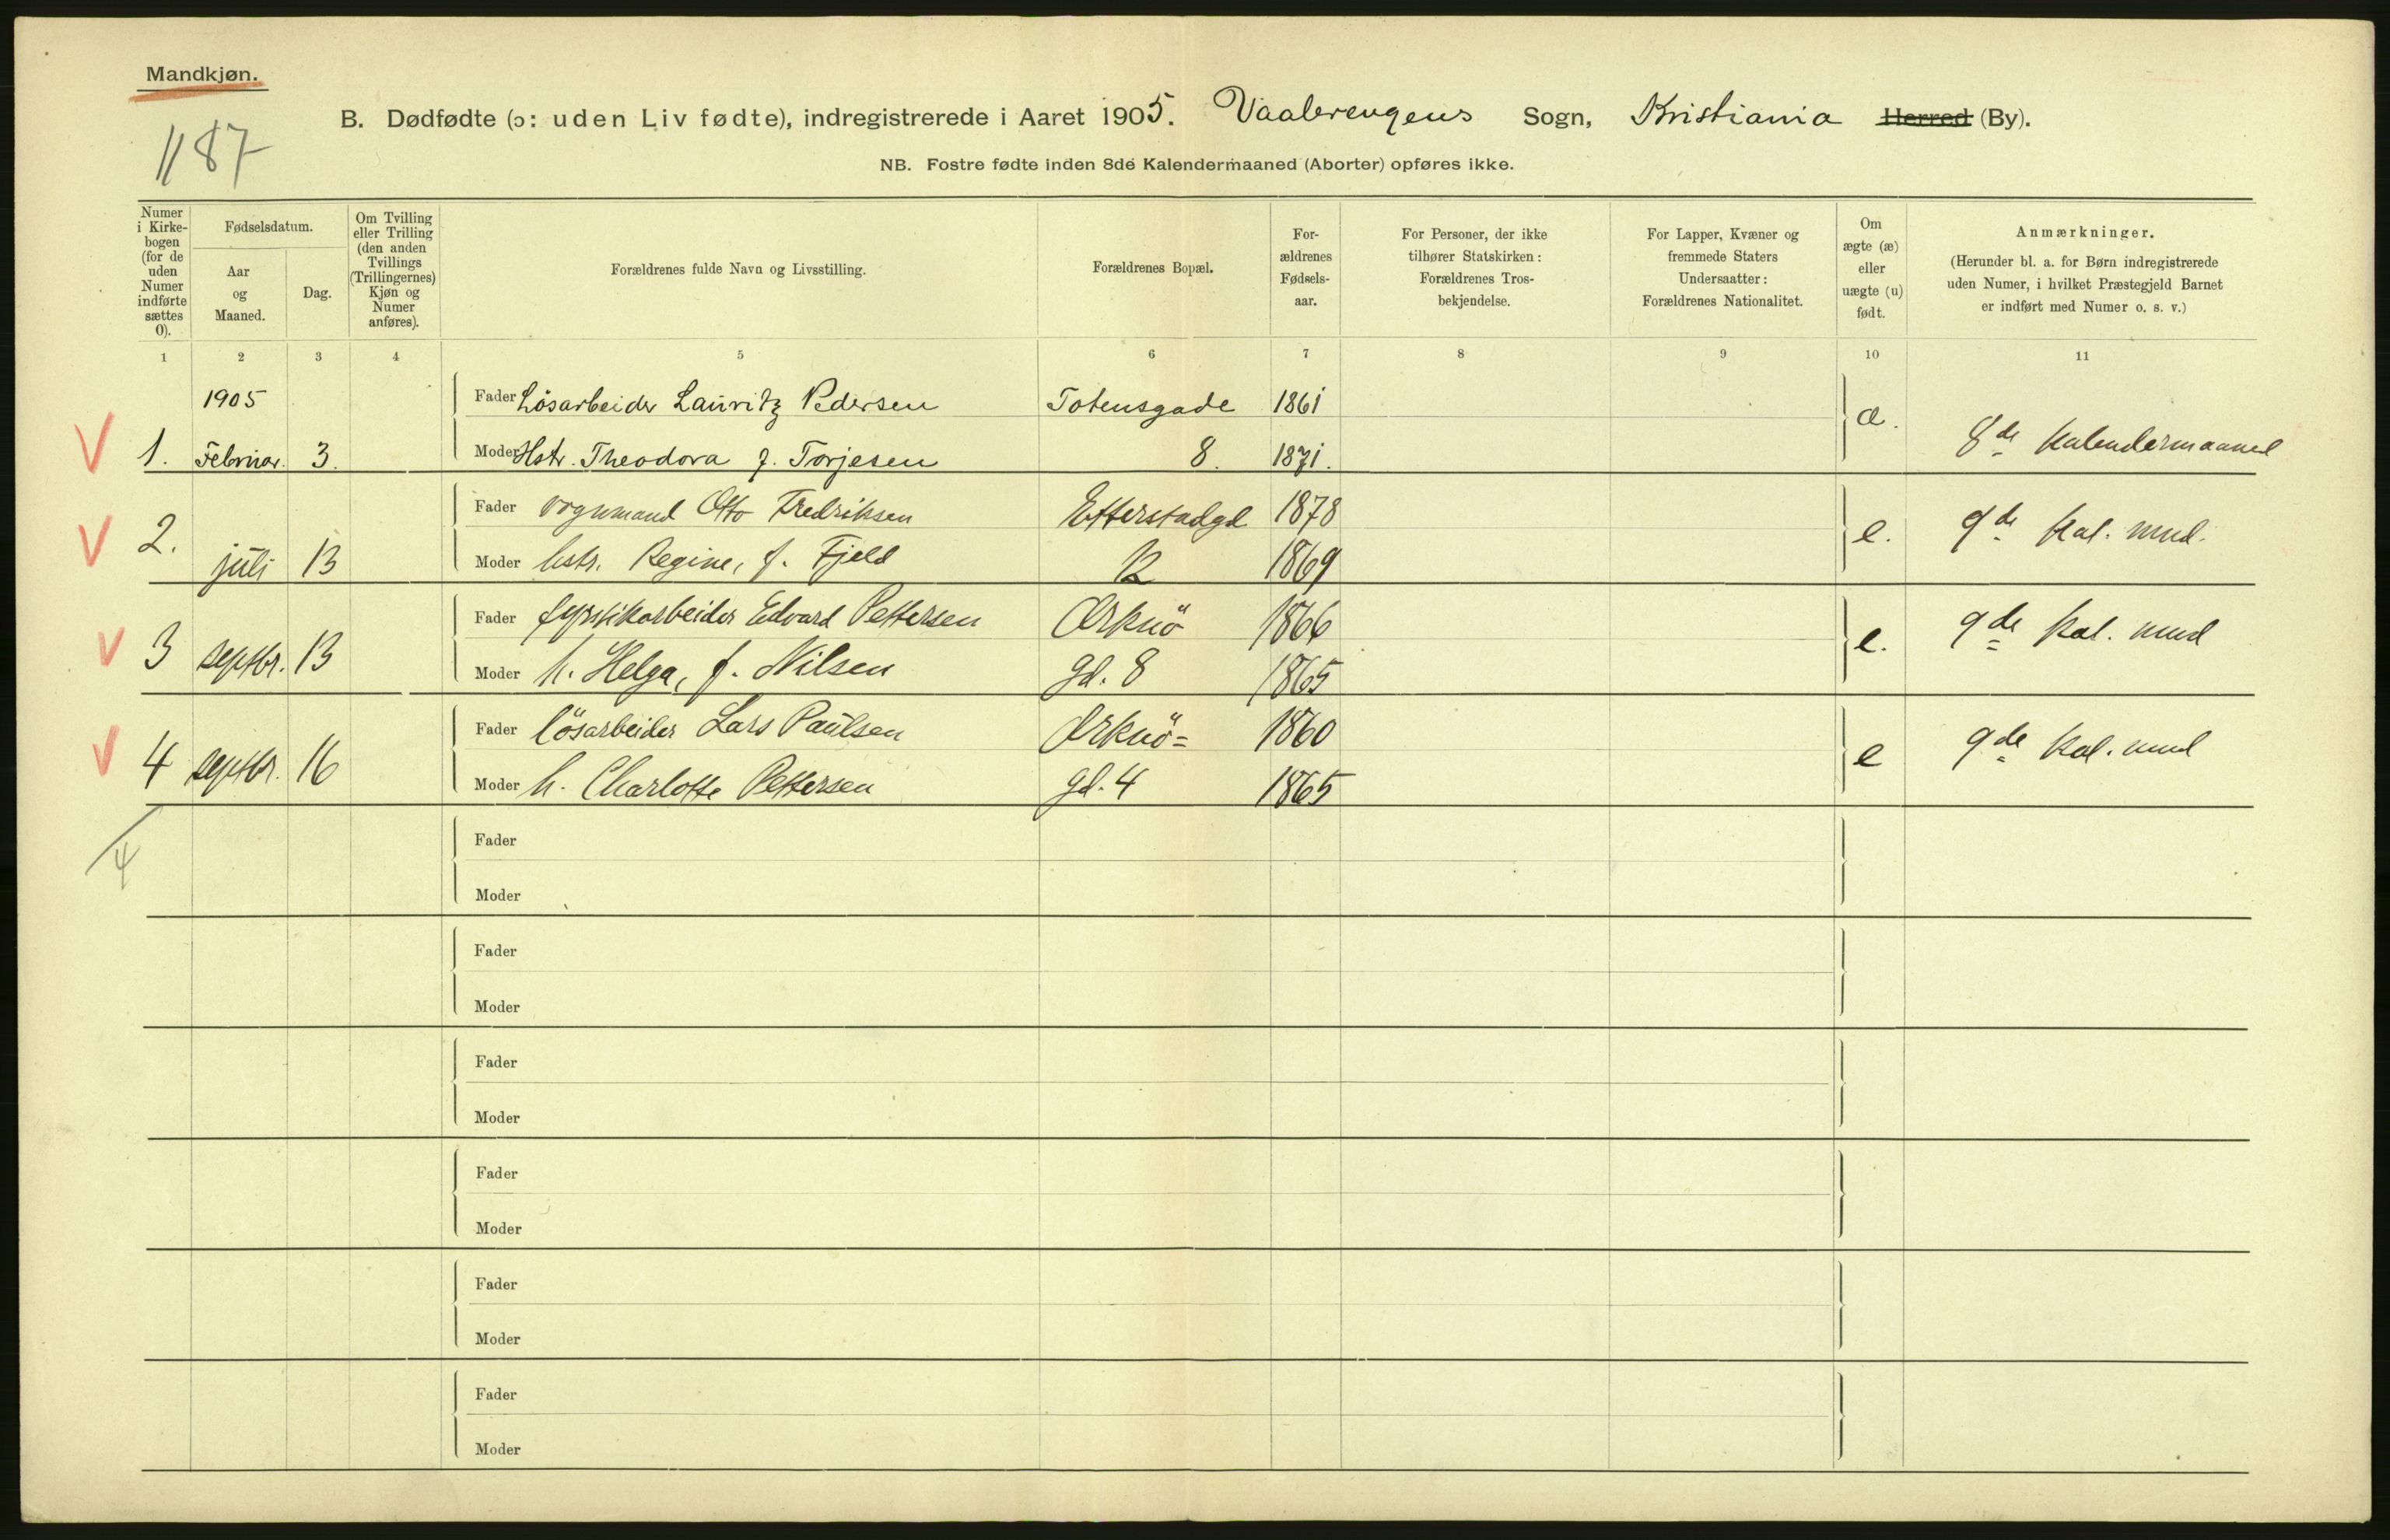 Mandkjøn.
1187
B. Dødfødte (ɔ: uden Liv fødte), indregistrerede i Aaret 1905. Vaalerengens Sogn, Kristiania Herred (By).
NB. Fostre fødte inden 8de Kalendermaaned (Aborter) opføres ikke.
Numer i Kirke-bogen (for de uden Numer indførte sættes 0).
Fødselsdatum.
Aar og Maaned.
Dag.
Om Tvilling eller Trilling (den anden Tvillings (Trillingernes) Kjøn og Numer anføres).
Forældrenes fulde Navn og Livsstilling.
Forældrenes Bopæl.
For-ældrenes Fødsels-aar.
For Personer, der ikke tilhører Statskirken: Forældrenes Tros-bekjendelse.
For Lapper, Kvæner og fremmede Staters Undersaatter: Forældrenes Nationalitet.
Om ægte (æ) eller uægte (u) født.
Anmærkninger.
(Herunder bl. a. for Børn indregistrerede uden Numer, i hvilket Præstegjeld Barnet er indført med Numer o. s. v.)
1 2 3 4 5 6 7 8 9 10 11
1905 Fader Lösarbeider Lauritz Pedersen Totensgade 1861 æ.
V 1. Februar. 3. Moder Hstr. Theodora f. Torjesen 8. 1871. 8de kalendermaaned
Fader vognmand Otto Fredriksen Etterstadgd 1878
V 2. juli 13 Moder hstr. Regine, f. Fjeld 12 1869 e. 9de kal. mnd.
Fader fyrstikarbeider Edvard Pettersen Orknö 1866
V 3 septbr. 13 Moder h. Helga, f. Nilsen gd. 8 1865 e. 9de kal. mnd
Fader lösarbeider Lars Paulsen Orknö= 1860
V 4 septbr. 16 Moder h. Charlotte Pettersen gd. 4 1865 e 9de kal. mnd
4
Fader
Moder
Fader
Moder
Fader
Moder
Fader
Moder
Fader
Moder
Fader
Moder